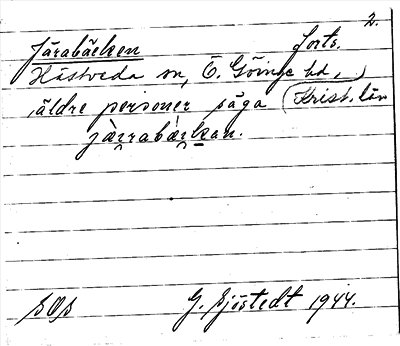 2.
Järabäcken forts.
Hästveda sn, Ö. Göinge hd,
äldre personer säga (Krist. län)
jærrabærkan.
SOS G. Sjöstedt 1944.